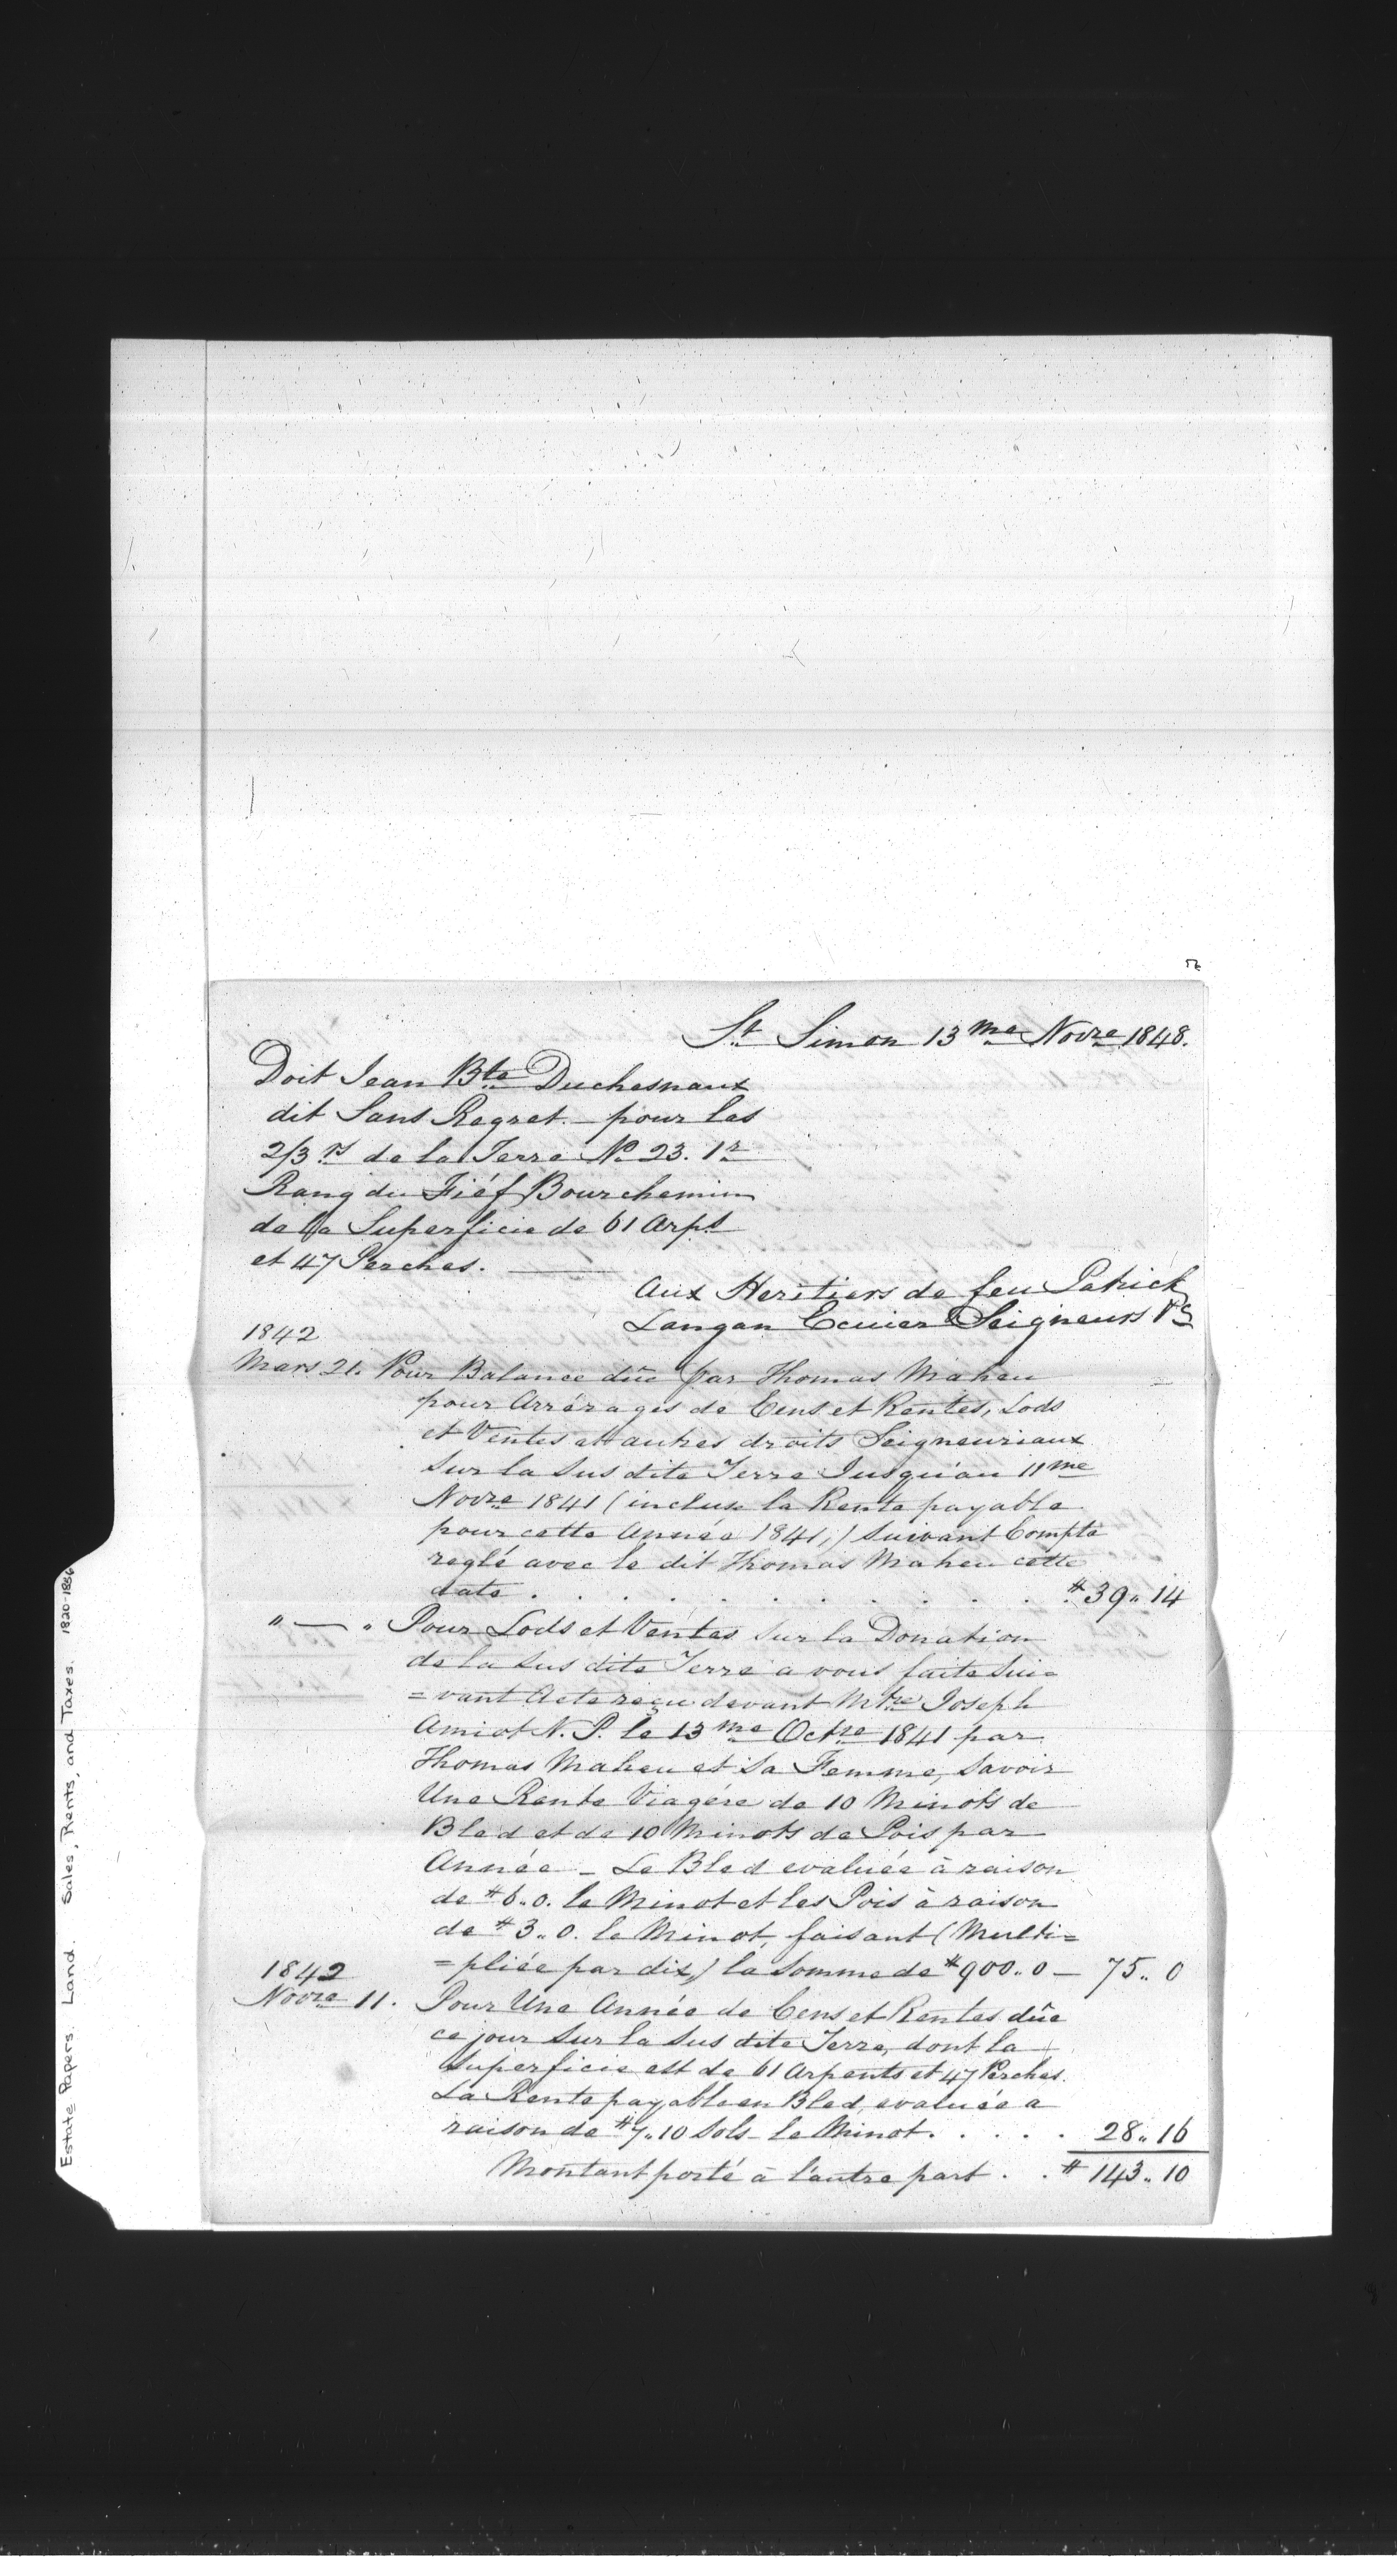 St Simon 13me Novre 1848.
Doit Jean Bte Duchesnaux
dit Sans Regret. — pour les
2/3rs de la Terre No 23. 1r
Rang du Fiéf Bourchemin
de la Superficie de 61 Arps
et 47 Perches. —
Aux Heritiers de feu Patrick
Langan Ecuier Seigneurs
1842
Mars 21. Pour Balance dûe par Thomas Maheu
pour Arrérages de Cens et Rentes, Lods
et Ventes et autres droits Seigneuriaux
Sur la Sus dite Terre Jusqu'au 11me
Novre 1841 (incluse la Rente payable
pour cette Année 1841,) Suivant Compte
reglé avec le dit Thomas Maheu cette
date . . . . . . . . . . . # 39,, 14
" — " Pour Lods et Ventes Sur la Donation
de la Sus dite Terre a vous faite Sui=
=vant Acte reçu devant Mtre Joseph
Amiot N. P. le 13me Octre 1841 par
Thomas Maheu et Sa Femme, Savoir
Une Rente Viagére de 10 Minots de
Bled et de 10 Minots de Pois par
Année — Le Bled evaluée à raison
de # 6,, 0. le Minot et les Pois à raison
de # 3,, 0. le Minot, faisant (Multi=
=pliée par dix,) la Somme de # 900,, 0 — 75,, 0
1842
Novre 11. Pour Une Année de Cens et Rentes dûe
ce jour Sur la Sus dite Terre, dont la
Superficie est de 61 Arpents et 47 Perches.
La Rente payable en Bled, evaluée a
raison de # 7,, 10 Sols le Minot. . . . . 28,, 16
Montant porté à l'autre part . . # 143,, 10
Estate Papers. Land. Sales, Rents, and Taxes. 1820-1856